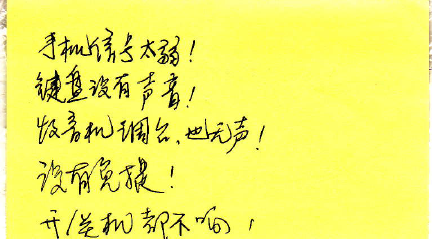 手机信号太弱！
键盘没有声音！
收音机调台，也无声！
没有免提！
开/关机都不响！